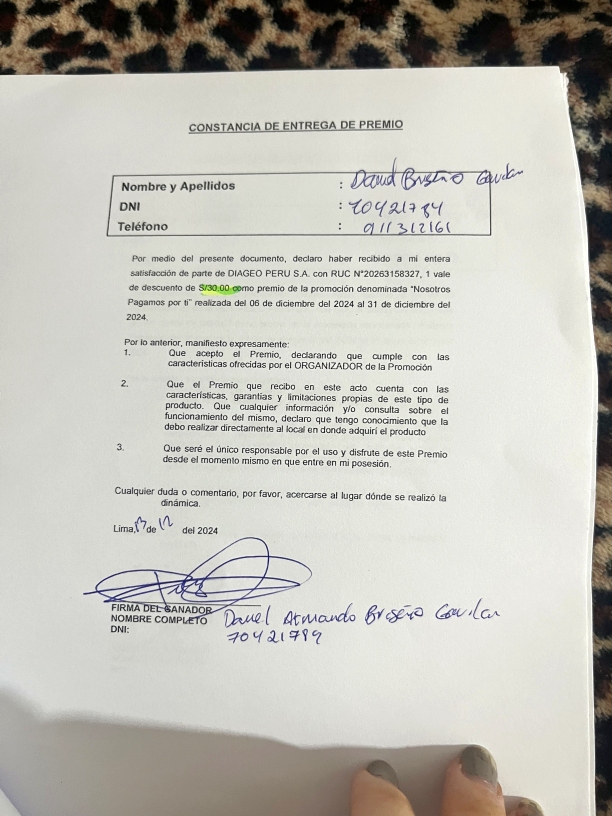 CONSTANCIA DE ENTREGA DE PREMIO
Nombre y Apellidos : Daniel Briseño Gavilan
DNI : 70421784
Teléfono : 911312161
Por medio del presente documento, declaro haber recibido a mi entera
satisfacción de parte de DIAGEO PERU S.A. con RUC N°20263158327, 1 vale
de descuento de S/30.00 como premio de la promoción denominada “Nosotros
Pagamos por ti” realizada del 06 de diciembre del 2024 al 31 de diciembre del
2024.
Por lo anterior, manifiesto expresamente:
1. Que acepto el Premio, declarando que cumple con las
características ofrecidas por el ORGANIZADOR de la Promoción
2. Que el Premio que recibo en este acto cuenta con las
características, garantías y limitaciones propias de este tipo de
producto. Que cualquier información y/o consulta sobre el
funcionamiento del mismo, declaro que tengo conocimiento que la
debo realizar directamente al local en donde adquirí el producto
3. Que seré el único responsable por el uso y disfrute de este Premio
desde el momento mismo en que entre en mi posesión.
Cualquier duda o comentario, por favor, acercarse al lugar dónde se realizó la
dinámica.
Lima, 13 de 12 del 2024
FIRMA DEL GANADOR
NOMBRE COMPLETO Daniel Armando Briseño Gavilan
DNI: 70421789